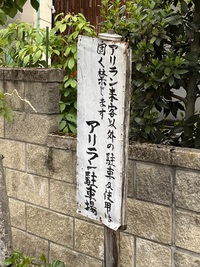 アリラン来客以外の駐車及使用は
固く禁じます
アリラン駐車場